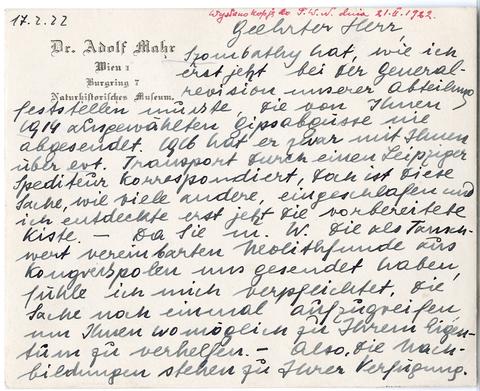 17.2.22
Wysłano kopję do T.W.N. dnia 21.II.1922.
Dr. Adolf Mahr
Wien I
Burgring 7
Naturhistorisches Museum.
Geehrter Herr,
Szombathy hat, wie ich
erst jetzt bei der General-
revision unserer Abteilung
feststellen musste die von Ihnen
1914 ausgewählten Gipsabgüsse nie
abgesendet. 1916 hat er zwar mit Ihnen
über evt. Transport durch einen Leipziger
Spediteur korrespondiert, doch ist diese
Sache, wie viele andere, eingeschlafen und
ich entdeckte erst jetzt die vorbereitete
Kiste. – Da Sie m. W. die als Tausch-
wert vereinbarten Neolithfunde aus
Kongresspolen uns gesendet haben,
fühle ich mich verpflichtet, die
Sache noch einmal aufzugreifen,
um Ihnen womöglich zu Ihrem Eigen-
tum zu verhelfen. – Also, die Nach-
bildungen stehen zu Ihrer Verfügung.